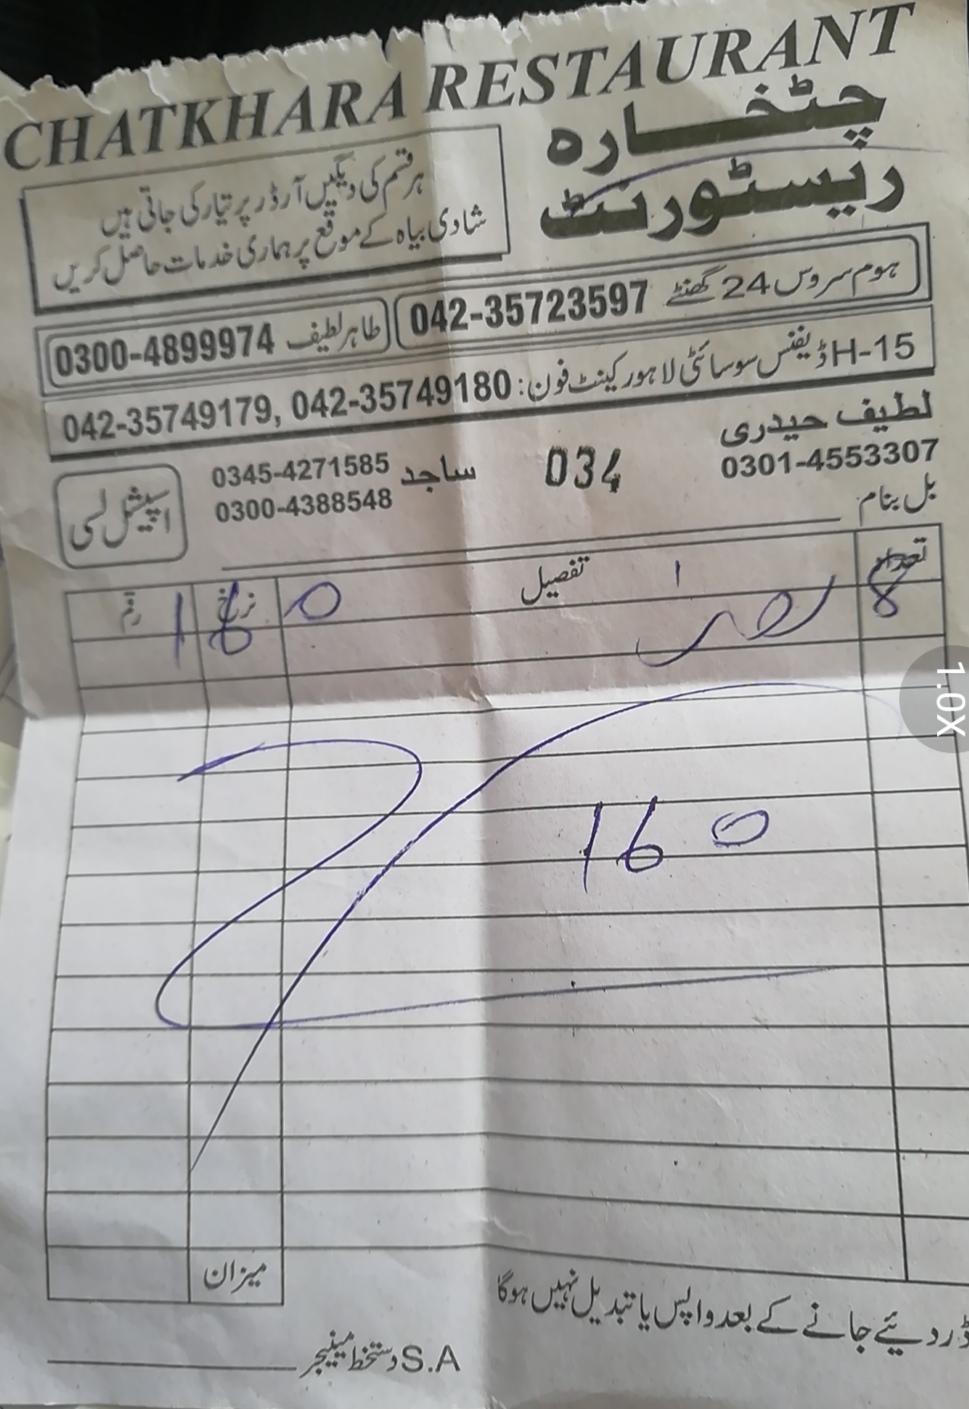 CHATKHARA RESTAURANT
چٹخارہ
ریسٹورنٹ
ہر قسم کی دیگیں آرڈر پر تیار کی جاتی ہیں
شادی بیاہ کے موقع پر ہماری خدمات حاصل کریں
ہوم سروس 24 گھنٹے 042-35723597
طاہر لطیف 0300-4899974
H-15 ڈیفنس سوسائٹی لاہور کینٹ فون: 042-35749179, 042-35749180
لطیف حیدری
0301-4553307
034
ساجد 0345-4271585
0300-4388548
اسپیشل لسی
بل بنام
تعداد تفصیل نرخ رقم
8 160
160
میزان
ڈر دیئے جانے کے بعد واپس یا تبدیل نہیں ہوگا
S.A دستخط مینیجر
1.0X